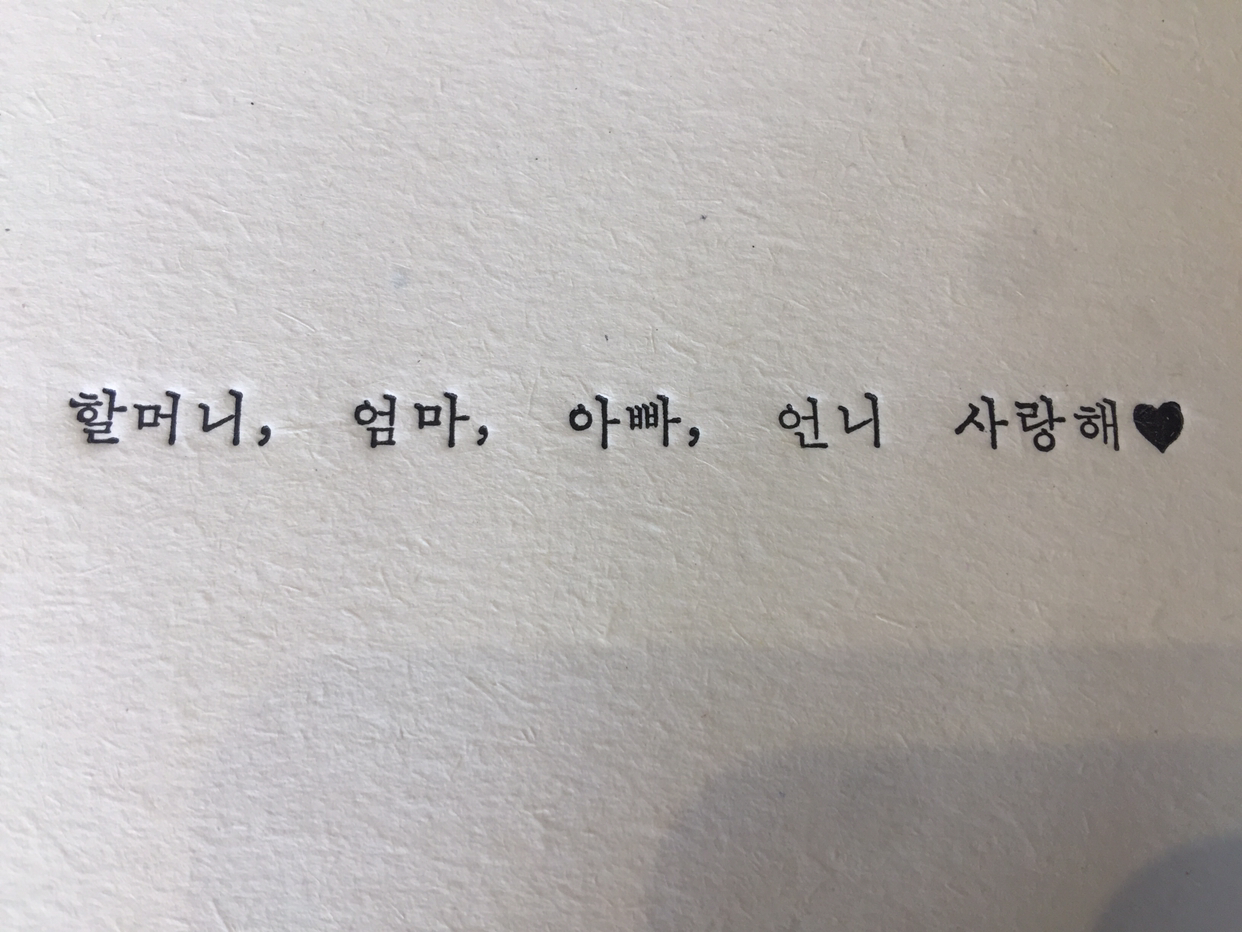 할머니, 엄마, 아빠, 언니 사랑해♥